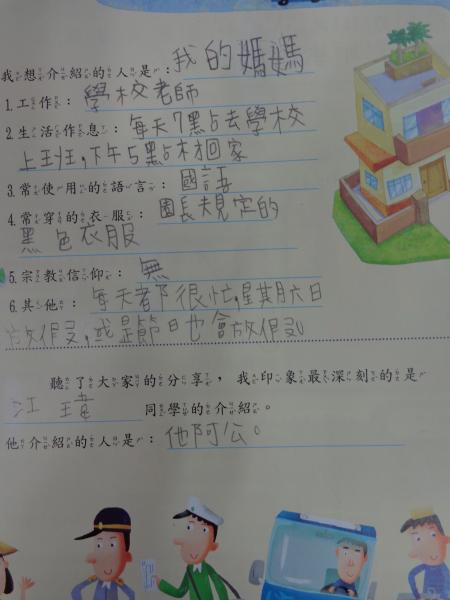 我想介紹的人是：我的媽媽
1.工作：學校老師
2.生活作息：每天7點去學校
上班,下午5點才回家
3.常使用的語言：國語
4.常穿的衣服：園長規定的
黑色衣服
5.宗教信仰：無
6.其他：每天都很忙,星期六日
放假,或是節日也會放假
聽了大家的分享，我印象最深刻的是
江 同學的介紹。
他介紹的人是：他阿公。